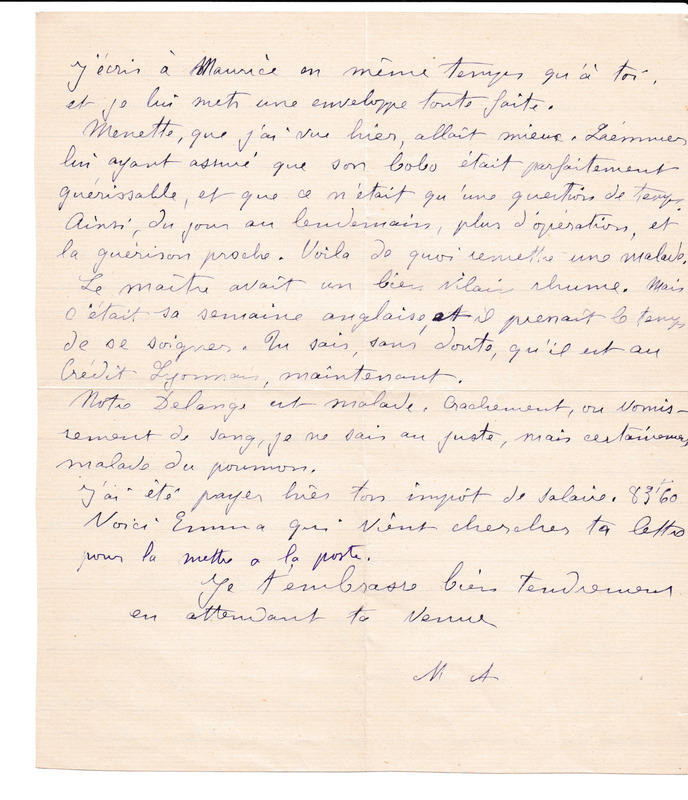 J'écris à Maurice en même temps qu'à toi,
et je lui mets une enveloppe toute faite.
Menette, que j'ai vue hier, allait mieux.
lui ayant assuré que son bobo était parfaitement
guérissable, et que ce n'était qu'une question de temps.
Ainsi, du jour au lendemain, plus d'opération, et
la guérison proche. Voilà de quoi remettre une malade.
Le maître avait un bien vilain rhume. Mais
c'était sa semaine anglaise, et il prenait le temps
de se soigner. Tu sais, sans doute, qu'il est au
Crédit Lyonnais, maintenant.
Notre Delange est malade. Crachement, ou vomis-
sement de sang, je ne sais au juste, mais certainement
malade du poumon.
J'ai été payer hier ton impôt de salaire. 83f60
Voici Emma qui vient chercher ta lettre
pour la mettre a la poste.
Je t'embrasse bien tendrement
en attendant ta venue
M A